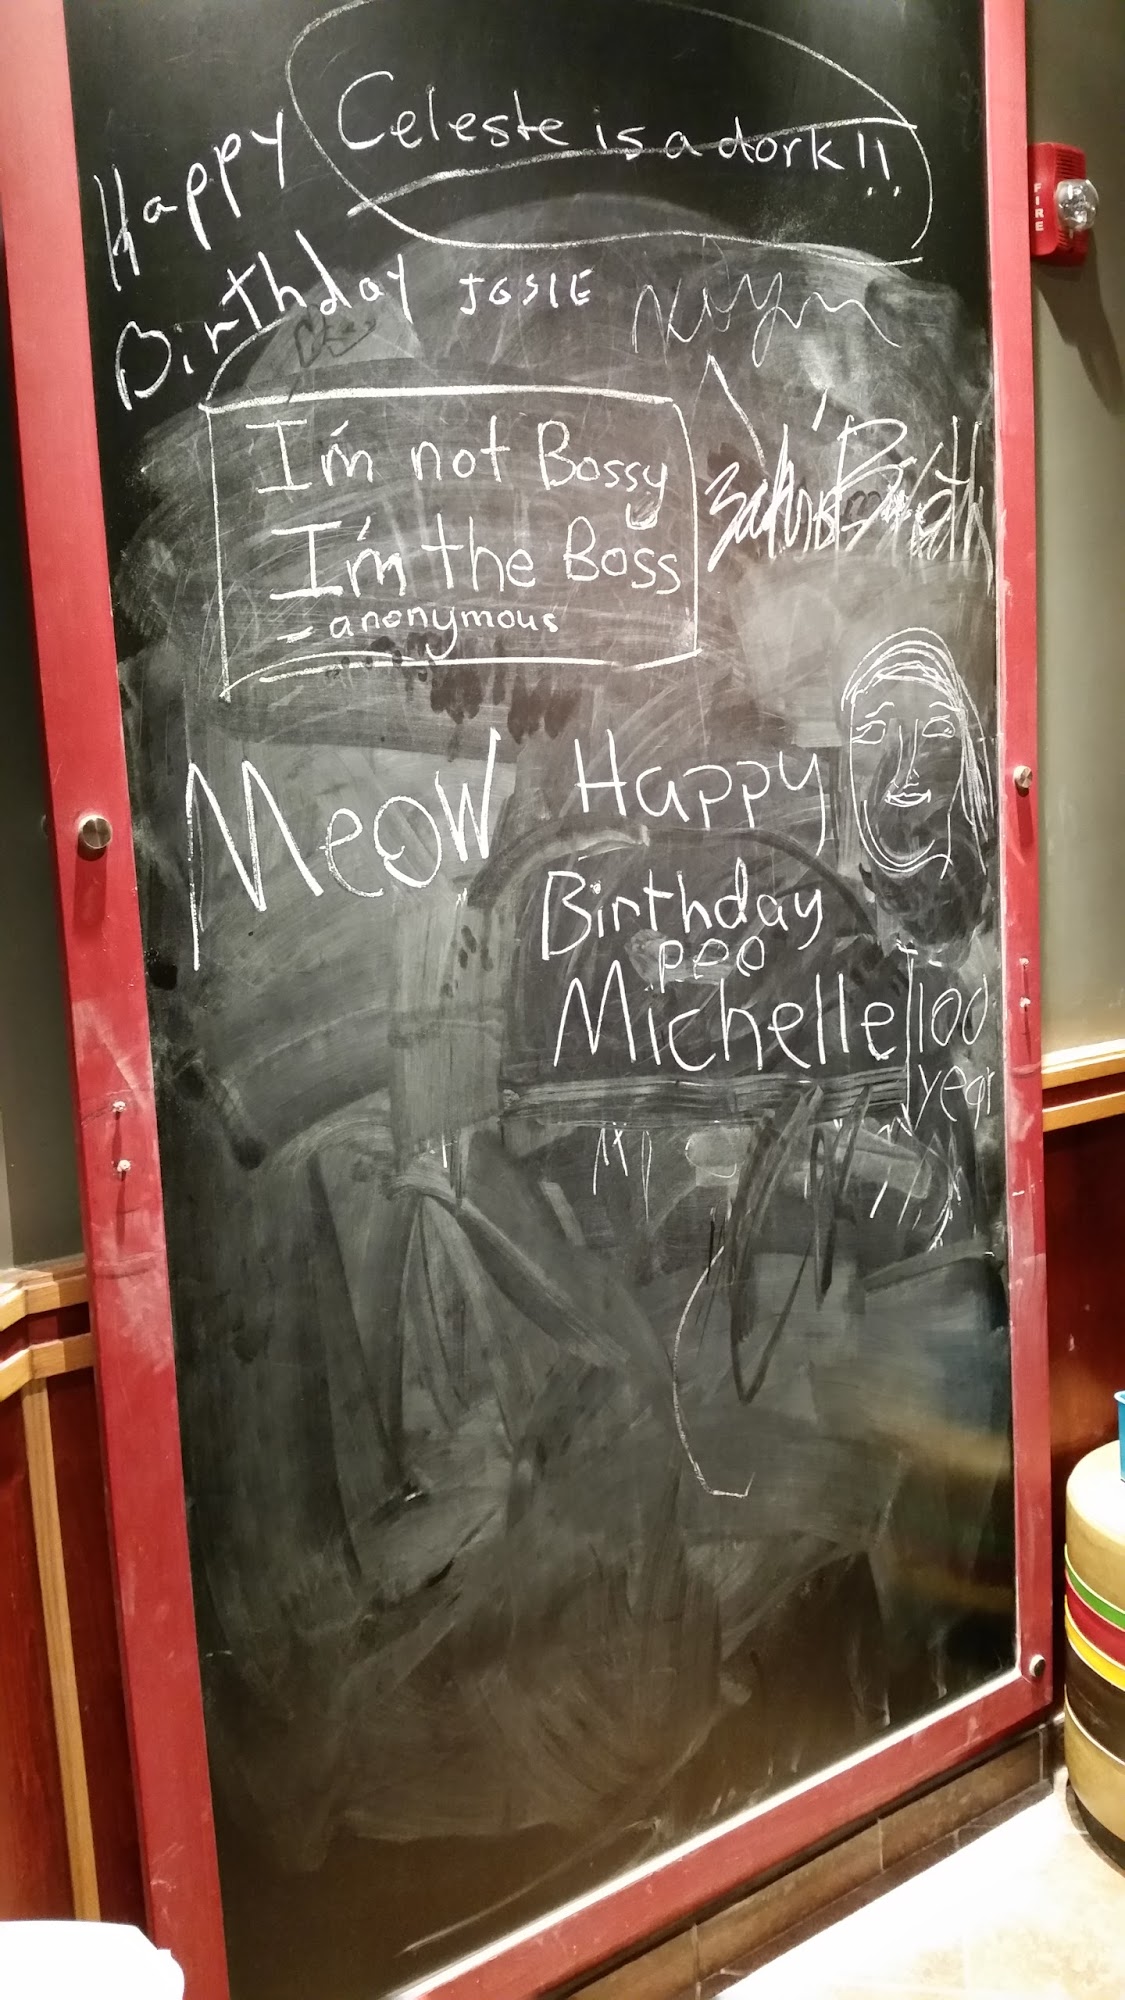 Celeste is a dork!!
Happy
Birthday JOSIE
I'm not Bossy
I'm the Boss
- anonymous
Meow
Happy
Birthday
peo
Michelle
100
year
FIRE